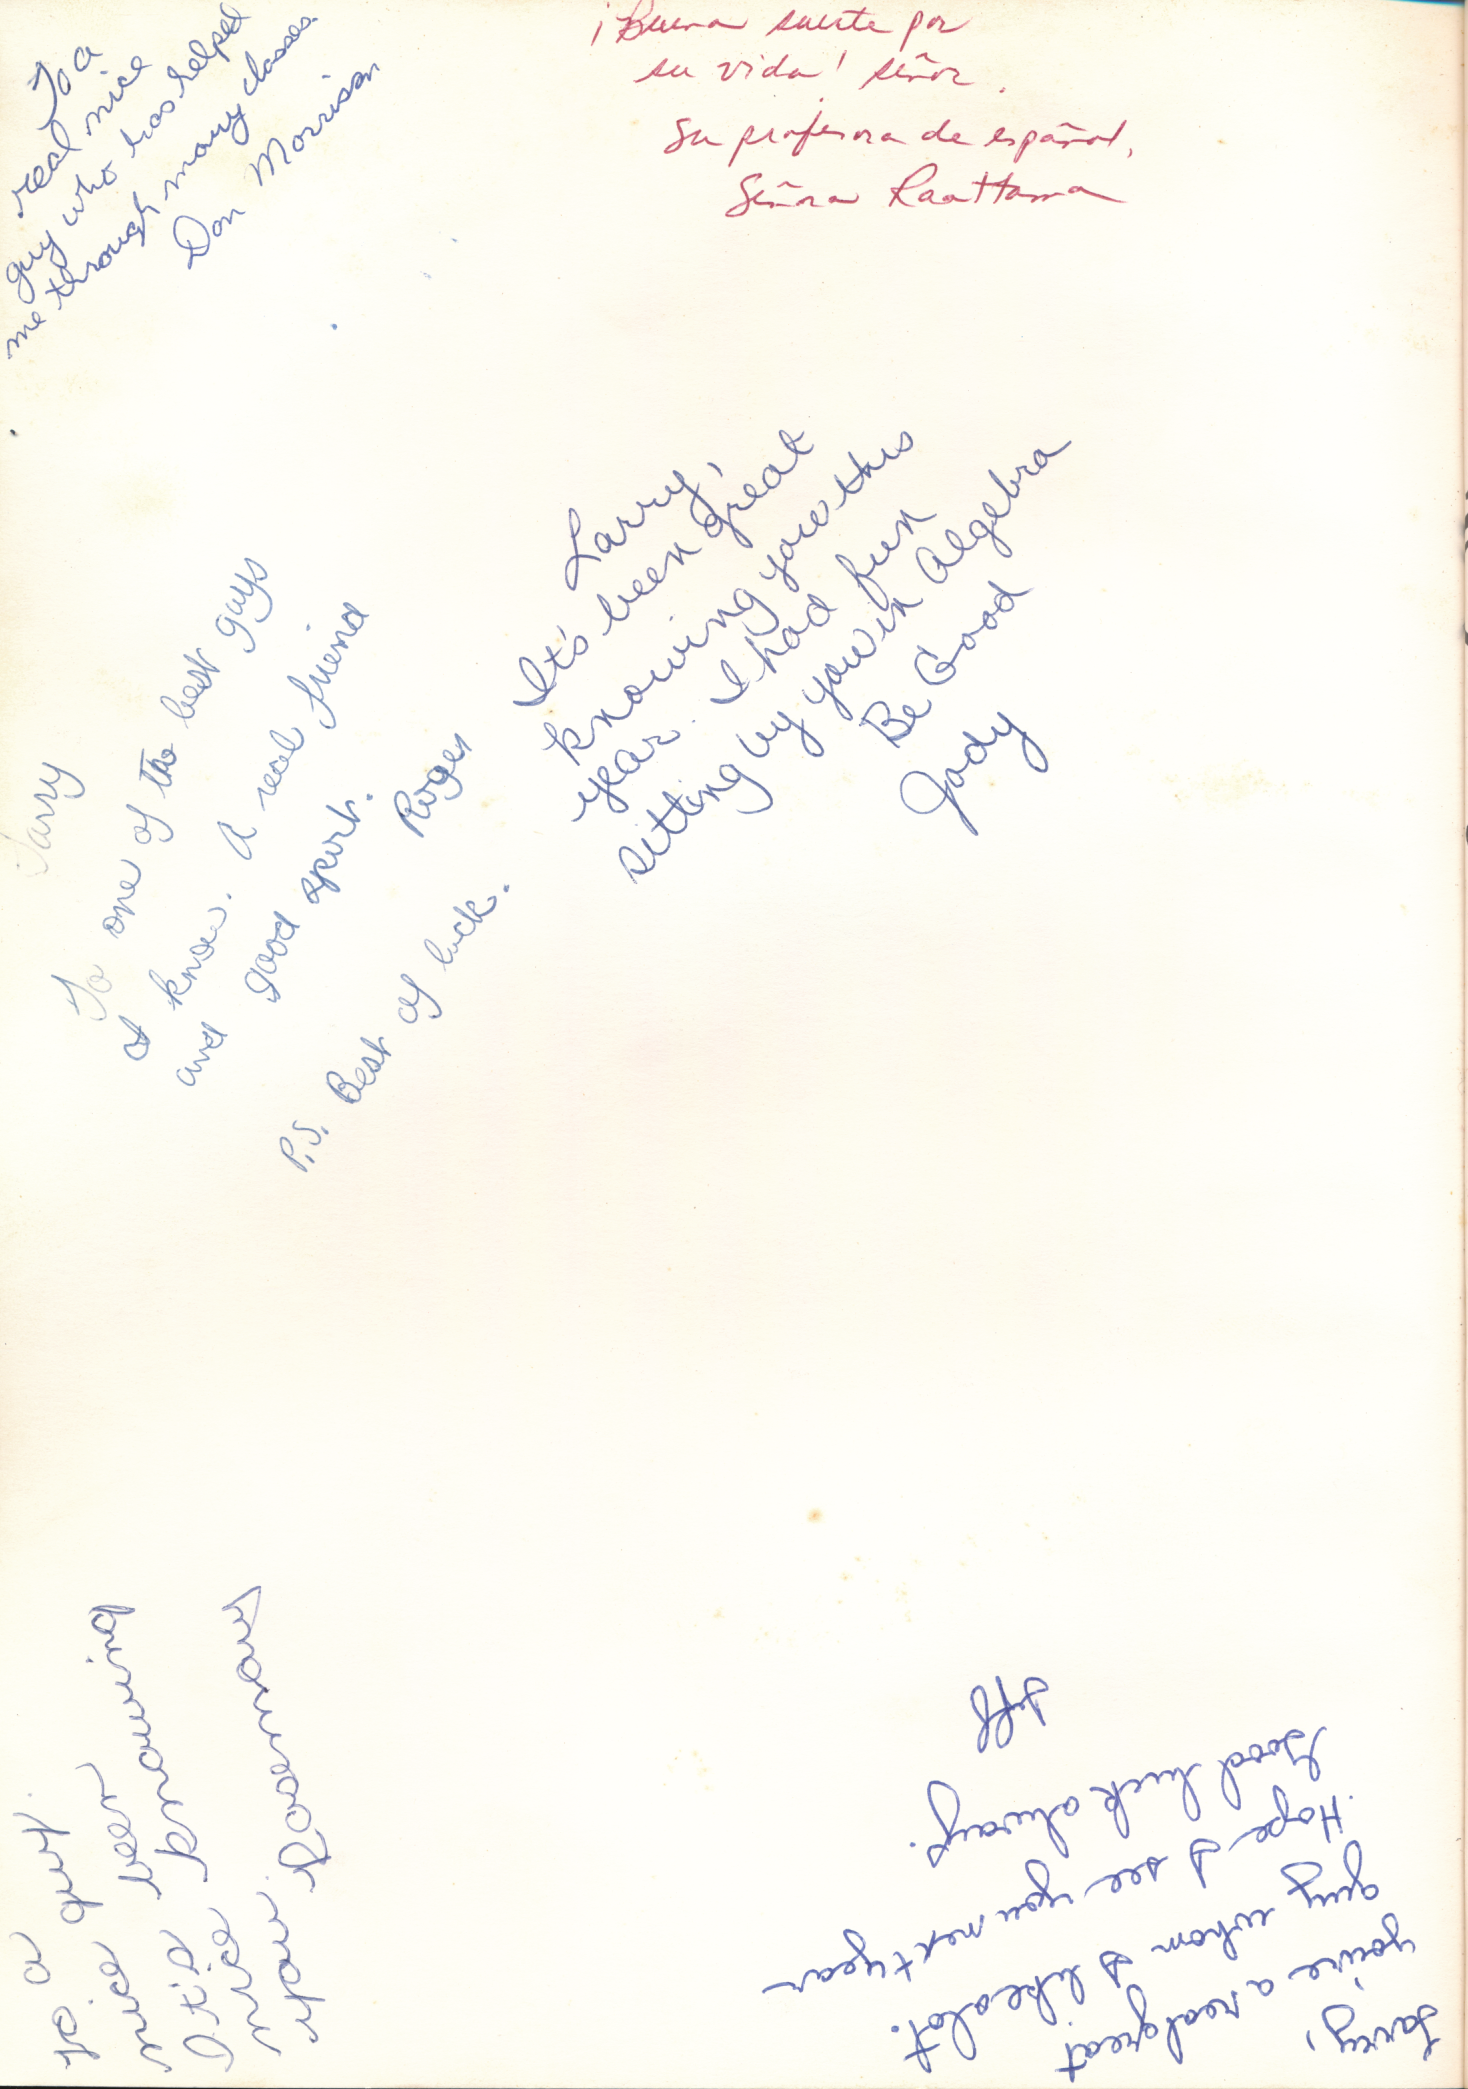 To a
real nice
guy who has helped
me through many classes.
Don Morrison
¡Buena suerte por
su vida! señor.
Su profesora de español,
Señora Raattama
Larry,
It's been great
knowing you this
year. I had fun
sitting by you in Algebra
Be Good
Jody
Larry
To one of the best guys
I know. A real friend
and good sport.
Roger
P.S. Best of luck.
To a
nice guy.
It's been
nice knowing
you.
Rosemary
Larry,
you're a real great
guy whom I like alot.
Hope I see you next year
Good luck always.
Jeff